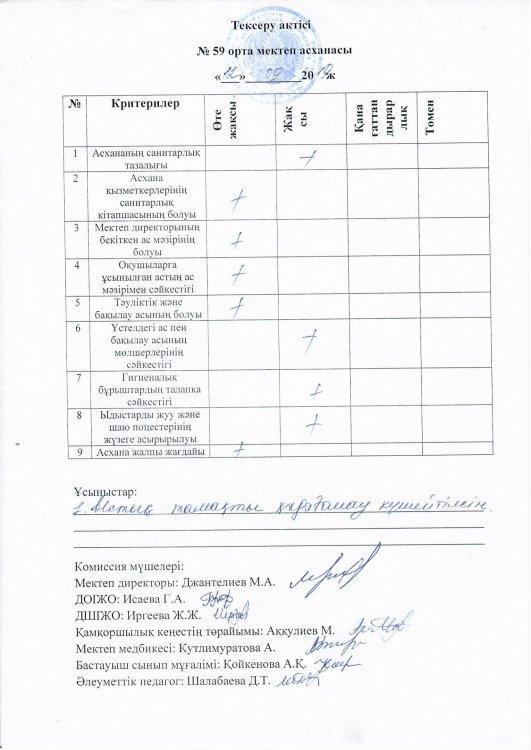 Тексеру актісі
№ 59 орта мектеп асханасы
«12» 09 2019ж
№ Критерилер Өте жақсы Жақ сы Қана ғаттан дырар лық Төмен
1 Асхананың санитарлық тазалығы +
2 Асхана қызметкерлерінің санитарлық кітапшасының болуы +
3 Мектеп директорының бекіткен ас мәзірінің болуы +
4 Оқушыларға ұсынылған астың ас мәзірімен сәйкестігі +
5 Тәуліктік және бақылау асының болуы +
6 Үстелдегі ас пен бақылау асының мөлшерлерінің сәйкестігі +
7 Гигиеналық бұрыштардың талапқа сәйкестігі +
8 Ыдыстарды жуу және шаю поцестерінің жүзеге асырырылуы +
9 Асхана жалпы жағдайы +
Ұсыныстар:
1. Ыстық тамақты қадағалау күшейтілсін.
Комиссия мүшелері:
Мектеп директоры: Джантелиев М.А.
ДОІЖО: Исаева Г.А.
ДШІЖО: Иргеева Ж.Ж.
Қамқоршылық кеңестің төрайымы: Аққулиев М.
Мектеп медбикесі: Кутлимуратова А.
Бастауыш сынып мұғалімі: Қойкенова А.Қ.
Әлеуметтік педагог: Шалабаева Д.Т.